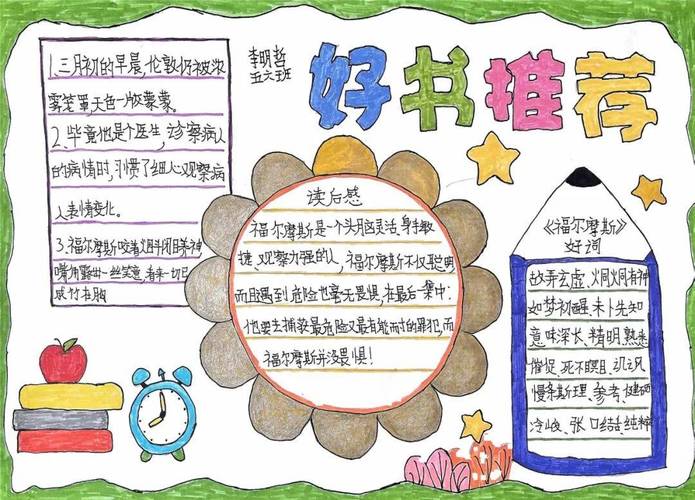 好书推荐
李明哲
五六班
1.三月初的早晨,伦敦仍被浓
雾笼罩,天色一片朦蒙。
2、毕竟他是个医生,诊察病人
的病情时,习惯了细心观察病
人表情变化。
3.福尔摩斯咬着烟斗闭目养神
嘴角露出一丝笑意,看来一切已
成竹在胸
读后感
福尔摩斯是一个头脑灵活、身手敏
捷、观察力强的人,福尔摩斯不仅聪明
而且遇到危险也毫无畏惧,在最后一集中:
他要去捕获最危险又最有能耐的罪犯,而
福尔摩斯并没畏惧!
《福尔摩斯》
好词
故弄玄虚、炯炯有神
如梦初醒、未卜先知
意味深长、精明、熟悉
催促、死不瞑目、讥讽
慢条斯理、参考、
冷峻、张口结舌、纯粹